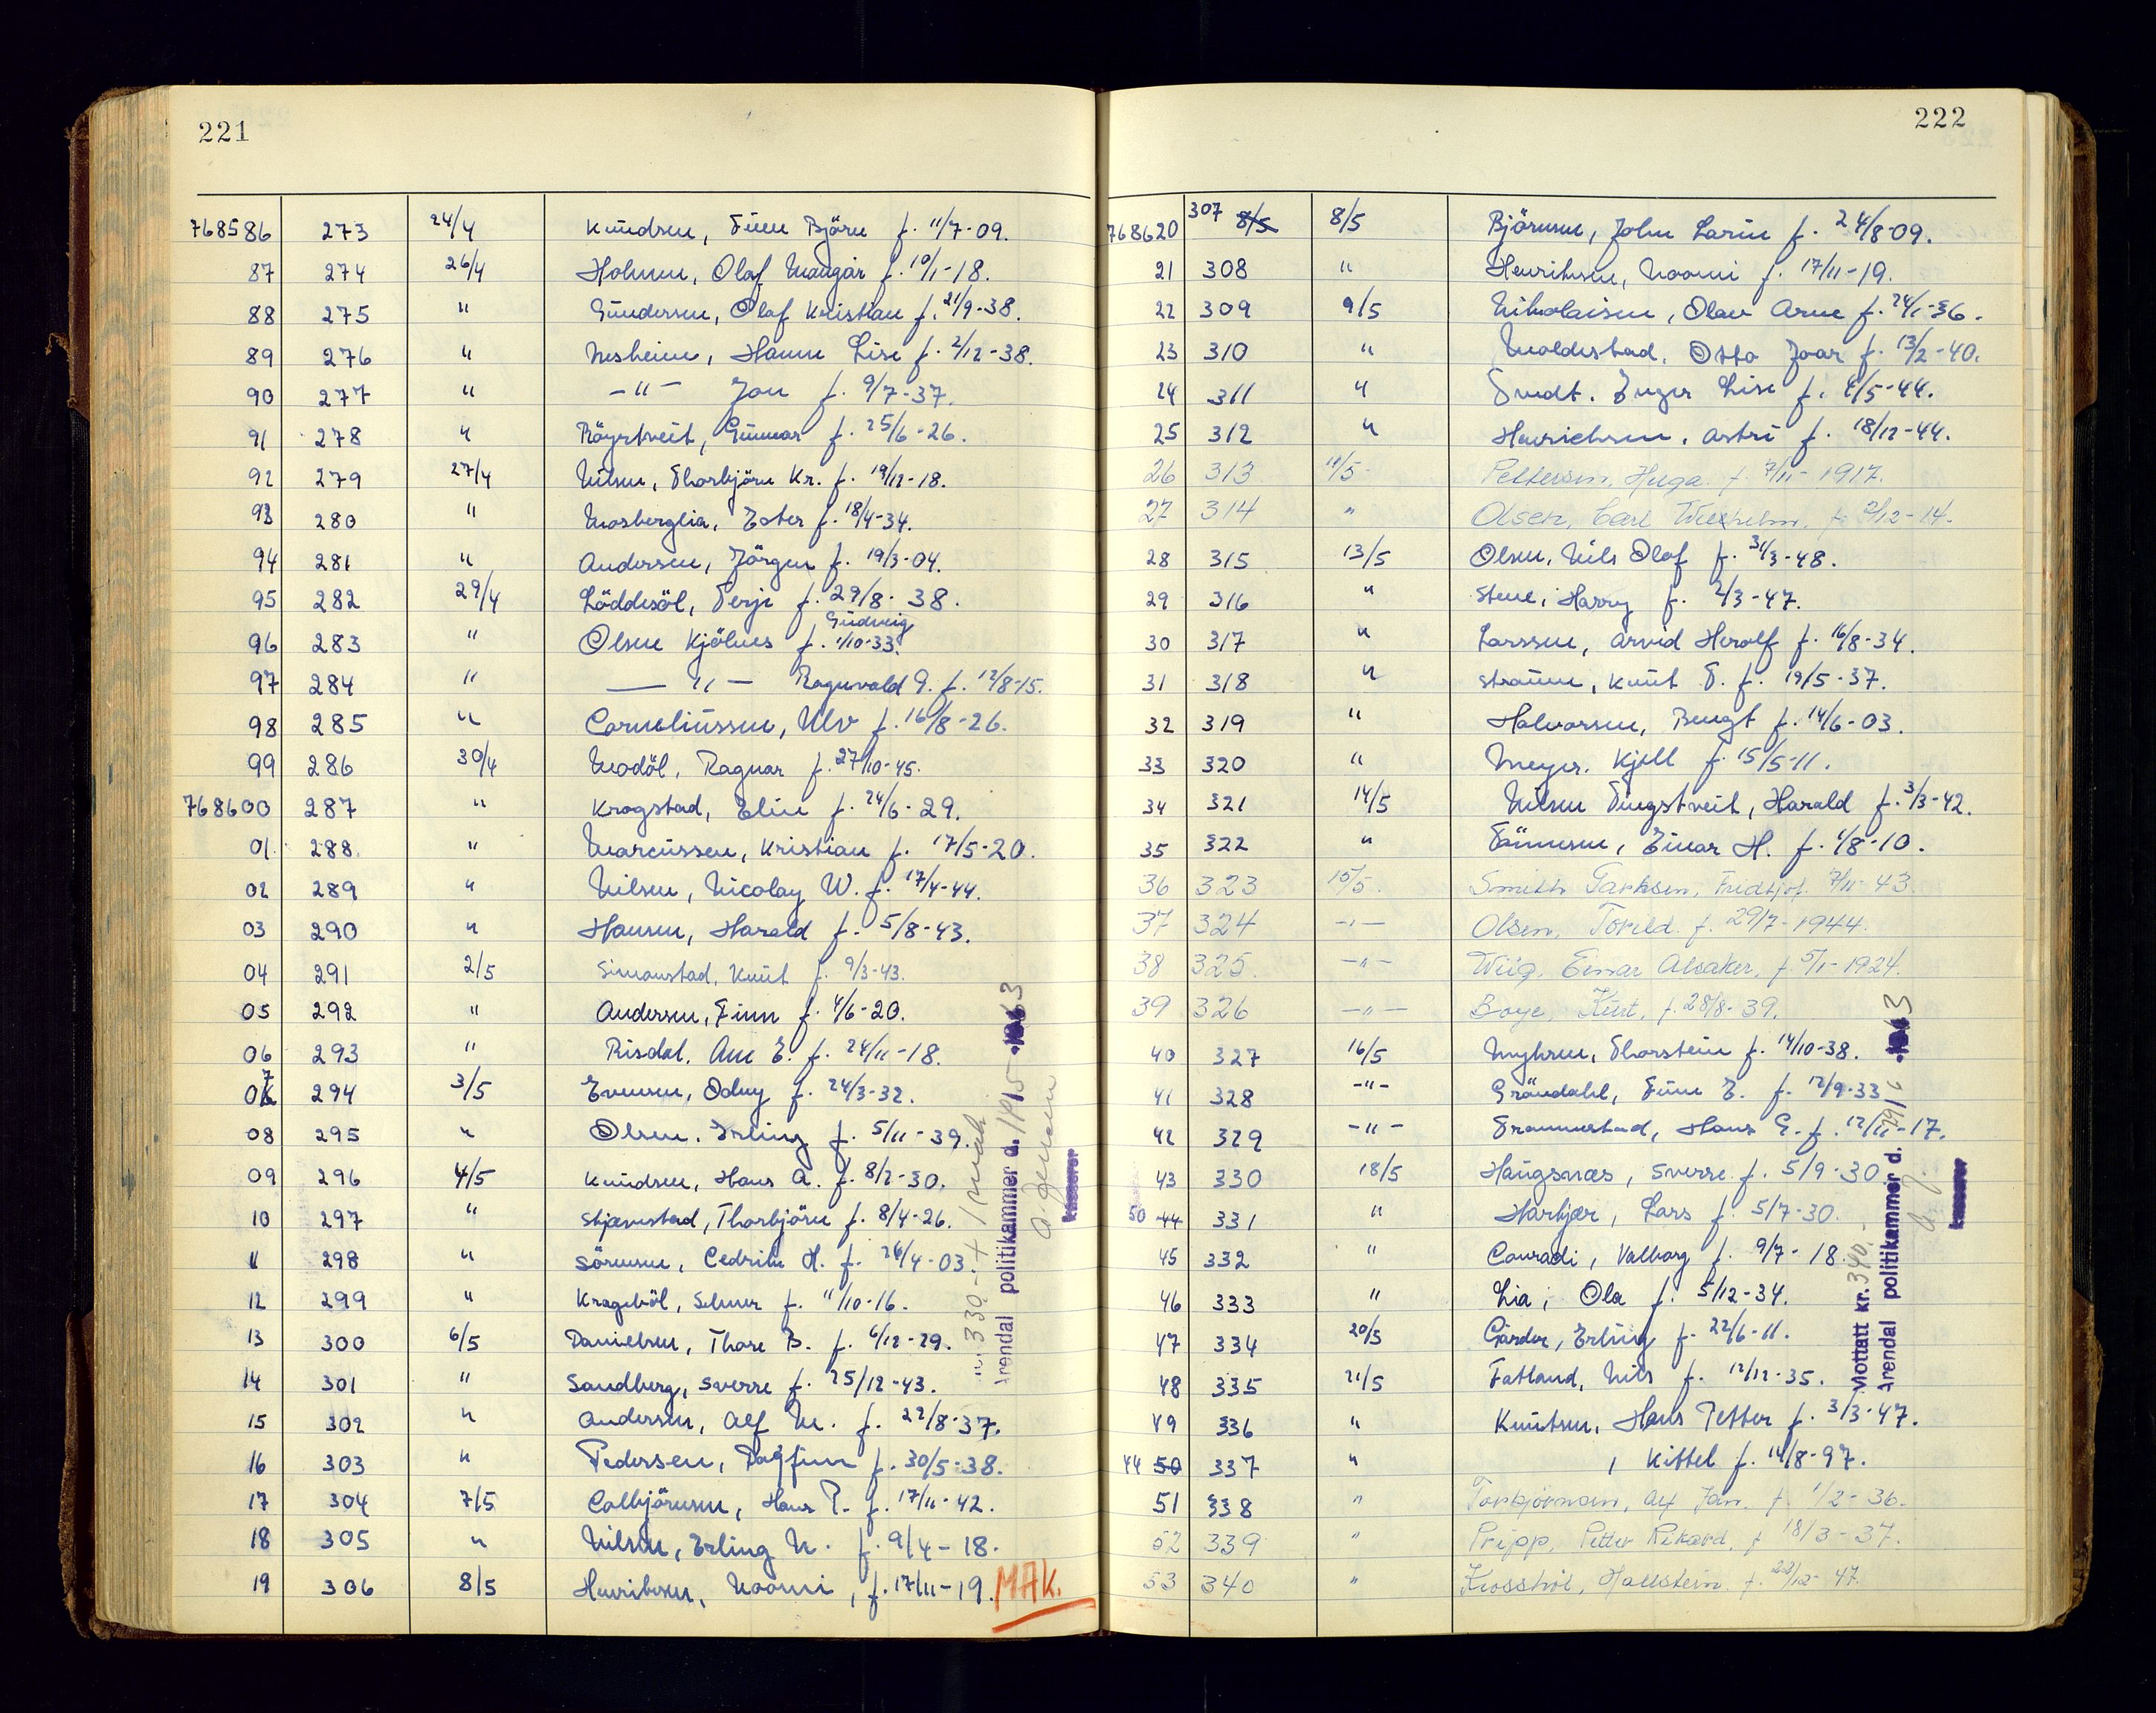 221
768586 273 24/4 Knudsen, Finn Björn f. 11/7-09.
87 274 26/4 Holmen, Olaf Maugar f. 10/1-18.
88 275 " Gundersen, Olaf Kristian f. 21/9-38.
89 276 " Nesheim, Hanne Lise f. 2/12-38.
90 277 " -"- Jon f. 9/7-37.
91 278 " Röyrtveit, Gunnar f. 25/6-26.
92 279 27/4 Nilsen, Thorbjörn Kr. f. 19/12-18.
93 280 " Mosberglia, Ester f. 18/4-34.
94 281 " Andersen, Jörgen f. 19/3-04.
95 282 29/4 Löddesöl, Terje f. 29/8-38.
Gudveig
96 283 " Olsen Kjölnes f. 1/10-33.
97 284 " -"- Ragnvald G. f. 12/8-15.
98 285 " Corneliussen, Ulv f. 16/8-26.
99 286 30/4 Modöl, Ragnar f. 27/10-45.
768600 287 " Krogstad, Elin f. 24/6-29.
01 288. " Marcussen, Kristian f. 17/5-20.
02 289 " Nilsen, Nicolay W. f. 17/4-44.
03 290 " Hansen, Harald f. 5/8-43.
04 291 2/5 Simonstad, Knut f. 9/3-43.
05 292 " Andersen, Finn f. 4/6-20.
06 293 " Risdal, Ane E. f. 24/11-18.
07 294 3/5 Evensen, Odny f. 24/3-32.
08 295 " Olsen, Erling f. 5/11-39.
09 296 4/5 Knudsen, Hans A. f. 8/2-30.
10 297 " Stjernstad, Thorbjörn f. 8/4-26.
11 298 " Sörensen, Cedrik H. f. 26/4-03.
12 299 " Krageböl, Selmer f. 11/10-16.
13 300 6/5 Danielsen, Thore B. f. 6/12-29.
14 301 " Sandberg, Sverre f. 25/12-43.
15 302 " Andersen, Alf M. f. 22/8-37.
16 303 " Pedersen, Dagfinn f. 30/5-38.
17 304 7/5 Colbjörnsen, Hans P. f. 17/11-42.
18 305 " Nilsen, Erling N. f. 9/4-18.
19 306 8/5 Henriksen, Noomi, f. 17/11-19. MAK.
330.- + 1 mak
Arendal politikammer d. 14/5 1963
A. Jensen
kasserer
222
768620 307 8/5 8/5 Björnsen, John Larin f. 24/8-09.
21 308 " Henriksen, Noomi f. 17/11-19.
22 309 9/5 Nikolaisen, Olav Arne f. 24/1-36.
23 310 " Moldestad, Otto Joar f. 13/2-40.
24 311 " Tvedt, Inger Lise f. 4/5-44.
25 312 " Henrichsen, Astri f. 18/12-44.
26 313 11/5 Pettersen, Huga. f. 7/11-1917.
27 314 " Olsen, Carl Wilhelm. f. 2/12-14.
28 315 13/5 Olsen, Nils Olaf f. 31/3-48.
29 316 " Stene, Harry f. 2/3-47.
30 317 " Larssen, Arvid Herolf f. 16/8-34.
31 318 " Straume, Knut T. f. 19/5-37.
32 319 " Halvorsen, Bengt f. 14/6-03.
33 320 " Meyer, Kjell f. 15/5-11.
34 321 14/5 Nilsen Tingstveit, Harald f. 3/3-42.
35 322 " Tönnesen, Einar H. f. 1/8-10.
36 323 15/5. Smith Tarksen, Fredtjof. 7/11-43.
37 324 -"- Olsen, Torild. f. 29/7-1944.
38 325. -"- Wiig, Einar Alsaker, f. 5/1-1924.
39 326 -"- Boye, Kurt, f. 28/8-39.
40 327 16/5 Myhren, Thorstein f. 14/10-38.
41 328 -"- Gröndahl, Finn E. f. 12/9-33
42 329 -"- Tronnestad, Hans G. f. 12/11-17.
43 330 18/5 Haugsnæs, Sverre f. 5/9-30
50 44 331 " Harkjær, Lars f. 5/7-30.
45 332 " Conradi, Valborg f. 9/7-18.
46 333 " Lia, Ola f. 5/12-34.
47 334 20/5 Garder, Erling f. 22/6-11.
48 335 21/5 Fatland, Nils f. 12/12-35.
49 336 " Knutsen, Hans Petter f. 3/3-47.
44 50 337 " , Kittel f. 14/8-97.
51 338 " Torbjörnsen, Alf Jan. f. 1/2-36.
52 339 " Pripp, Petter Rikard, f. 18/3-37.
53 340 " Krosshöl, Hallstein. f. 22/12-47.
Mottatt kr. 340.-
Arendal politikammer d. 1963
A. J.
kasserer